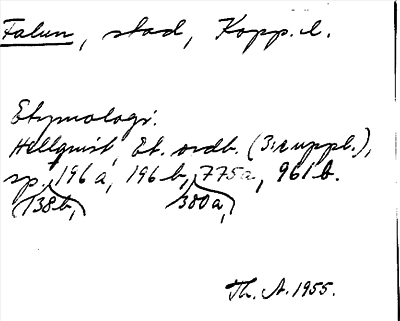 Falun, stad, Kopp. l.
Etymologi:
Hellquist, Et. ordb. (3:e uppl.),
sp. 196 a, 196 b, 775a, 961 b.
(138b,) 300a,
Th. A. 1955.